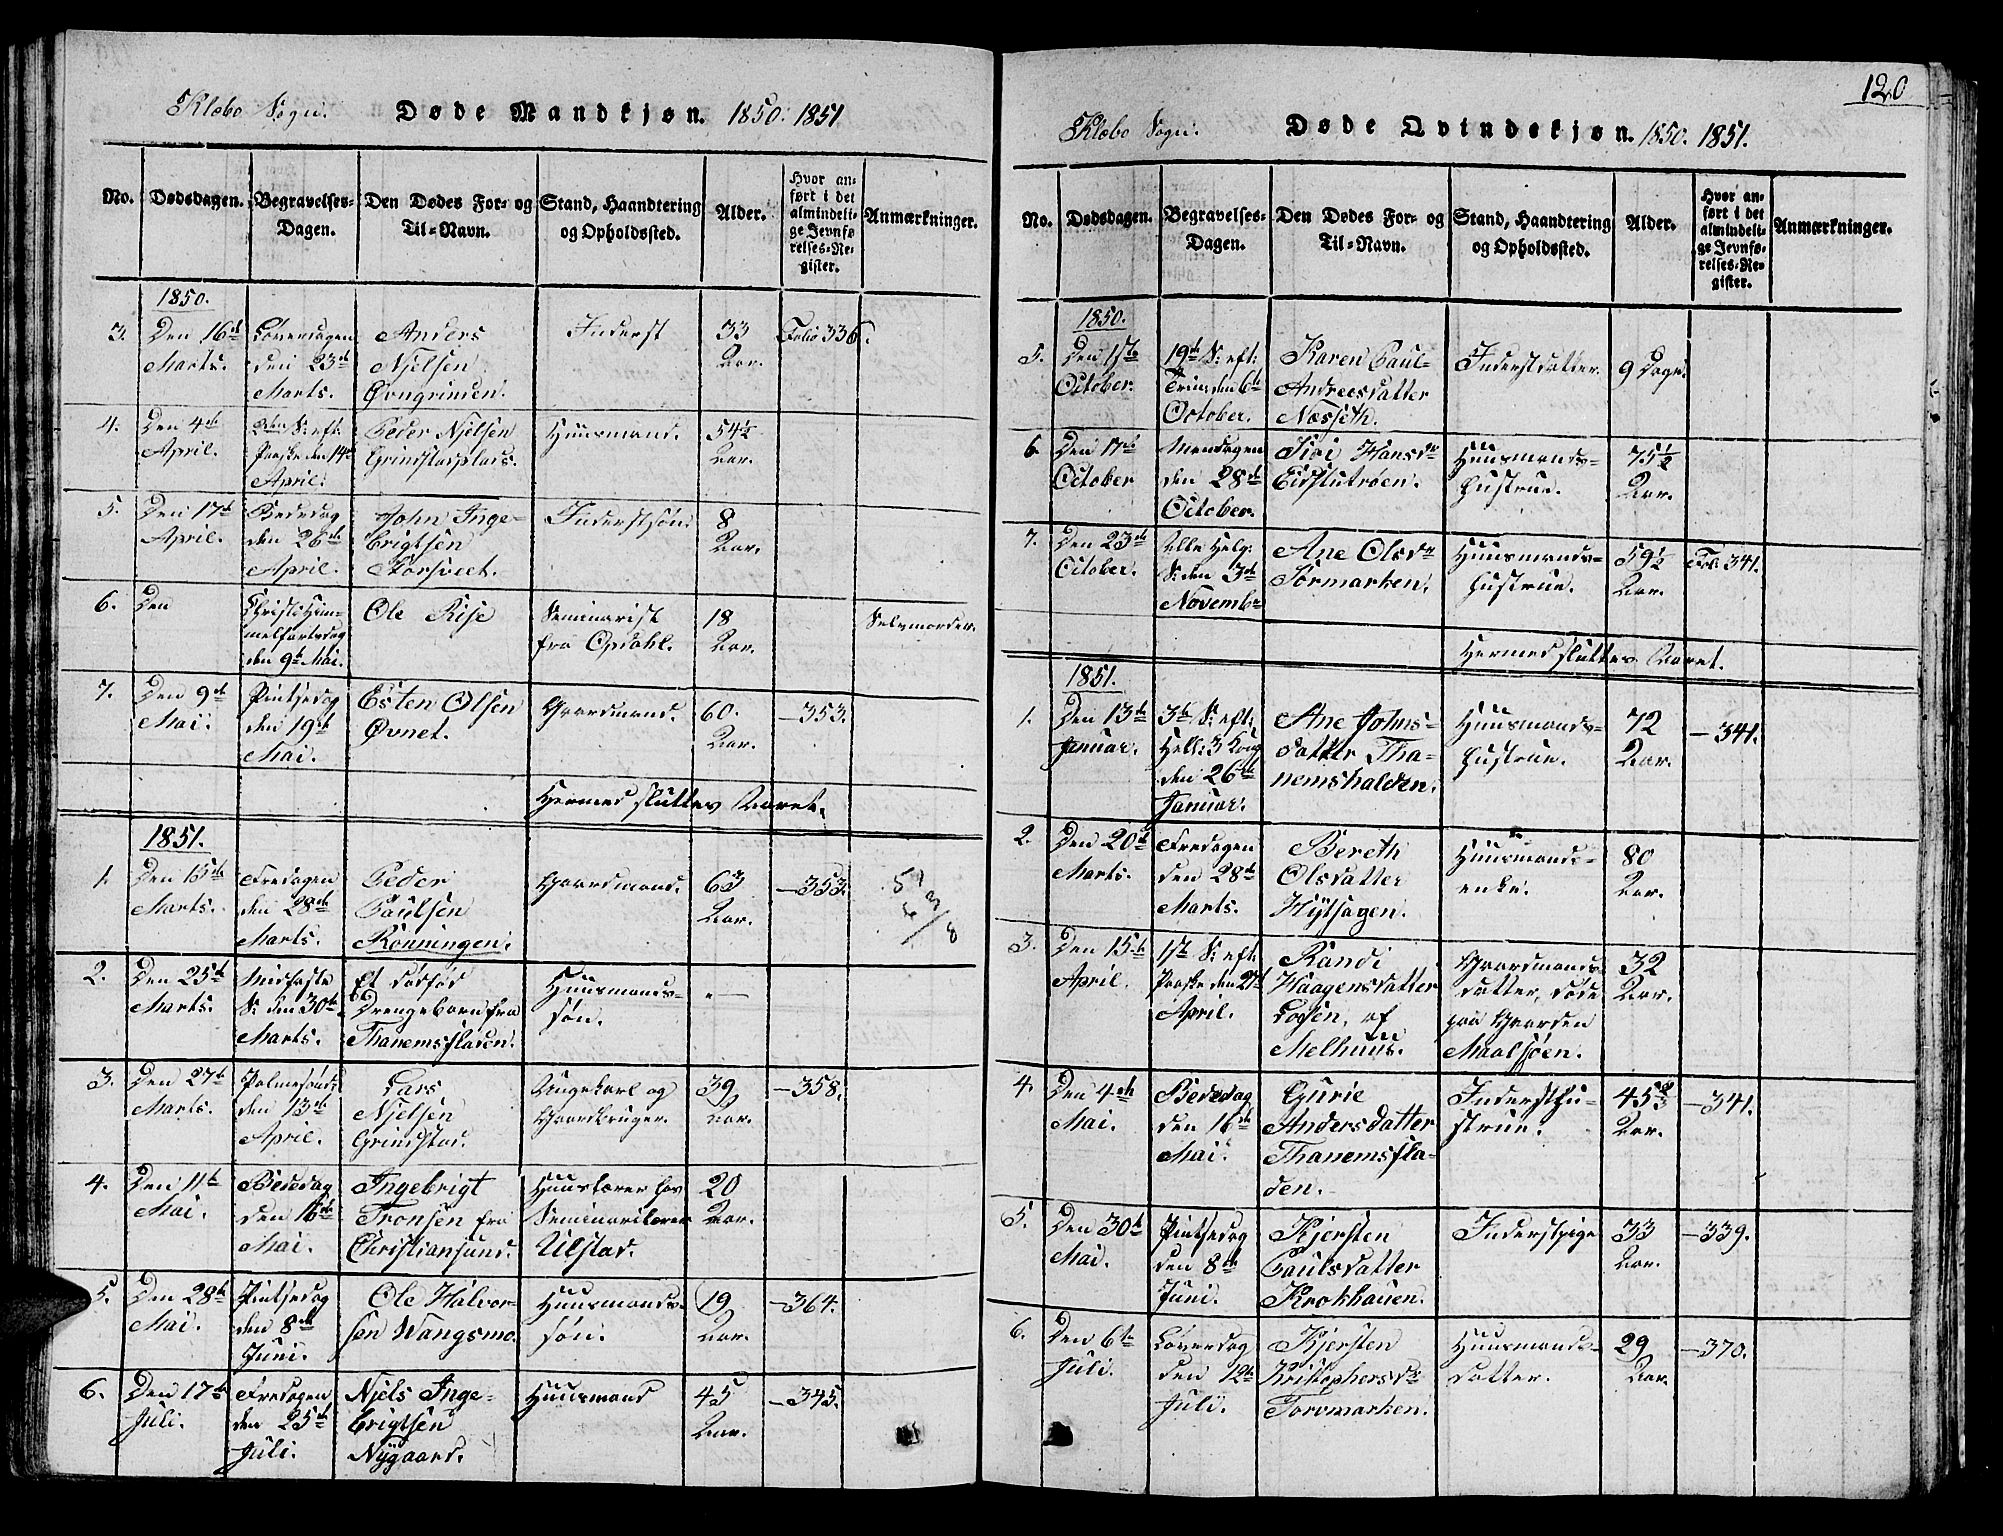 Klæbo Sogn. Døde Mandkjøn. 1850. 1851
No. Dødsdagen. Begravelses-Dagen. Den Dødes For- og Til-Navn. Stand, Haandtering og Opholdssted. Alder. Hvor anført i det almindelige Jevnførelses-Register. Anmærkninger.
1850.
3. Den 16de Marts. Løverdagen den 23de Marts. Anders Njelsen Øvngrinden. Inderst 33 Aar. Folio 336.
4. Den 4de April. 2den S: eft: Paaske den 14de April. Peder Njelsen Grindstadplads. Huusmand. 54½ Aar.
5. Den 17de April. Bededag den 26de April. John Inge-brigtsen Storsveet. Inderstsøn. 8 Aar.
6. Den Christi Him-melfartsdag den 9de Mai. Ole Rise Seminarist fra Opdahl. 18 Aar. Selvmorder.
7. Den 9de Mai. Pintsedag den 19de Mai. Esten Olsen Øvnet. Gaardmand. 60. Aar. -353.
Hermed sluttes Aaret.
1851.
1. Den 15de Marts. Fredagen den 28de Marts. Peder Paulsen Rønningen. Gaardmand. 63 Aar. -353.
2. Den 25de Marts. Midfaste S: den 30te Marts. Et dødfød Drengebarn fra Thanemsfladen. Huusmands-søn.
3. Den 27de Marts. Palmesønd: den 13de April. Lars Njelsen Grindstad. Ungekarl og Gaardbruger. 39 Aar. -358.
4. Den 11te Mai. Bededag den 16de Mai. Ingebrigt Tronsen fra Christiansund. Huuslærer hos Seminarilærer Ulstad. 20 Aar.
5. Den 28de Mai. Pintsedag den 8de Juni. Ole Halvor-sen Wangsmo. Huusmands-søn. 19 Aar. -364.
6. Den 17de Juli. Fredagen den 25de Juli. Njels Inge-brigtsen Nygaard. Huusmand 45 Aar. -345.
120
Klæbo Sogn. Døde Qvindekjøn. 1850. 1851.
No. Dødsdagen. Begravelses-Dagen. Den Dødes For- og Til-Navn. Stand, Haandtering og Opholdssted. Alder. Hvor anført i det almindelige Jevnførelses-Register. Anmærkninger.
1850.
5. Den 1ste October. 19de S: eft: Trin: den 6te October. Karen Paul-Andreesdatter Næsseth. Inderstdatter. 9 Dage.
6. Den 17de October Mandagen den 28de October. Siri Hansdr Eidstutrøen. Huusmands-hustrue. 75½ Aar.
7. Den 23de October. Alle Helg: S: den 3de Novembr Ane Olsdr Sørmarken. Huusmands-hustrue. 59½ Aar. Fol: 341.
Hermed sluttes Aaret.
1851.
1. Den 13de Januar. 3de S: eft: Hell: 3 Kong den 26de Januar. Ane Johns-datter Tha-nemshalden. Huusmands-hustrue. 72 Aar. -341.
2. Den 20de Marts. Fredagen den 28de Marts. Bereth Olsdatter Hytsagen. Huusmands-enke. 80 Aar.
3. Den 15de April. 1ste S: eft: Paaske den 27de April. Randi Haagensdatter Losen, af Melhuus. Gaardmands-datter, døde paa Gaarden Maalsøen. 32 Aar.
4. Den 4de Mai. Bededag den 16de Mai. Gurie Andersdatter Thanemsfla-den. Indersthu-strue. 45⅔ Aar. -341.
5. Den 30te Mai. Pintsedag den 8de Juni. Kjersten Paulsdatter Krokhauen. Inderstpige 33 Aar. -339.
6. Den 6te Juli. Løverdag den 12te Juli. Kjersten Kristophersdr Torvmarken. Huusmands-datter. 29 Aar. -370.